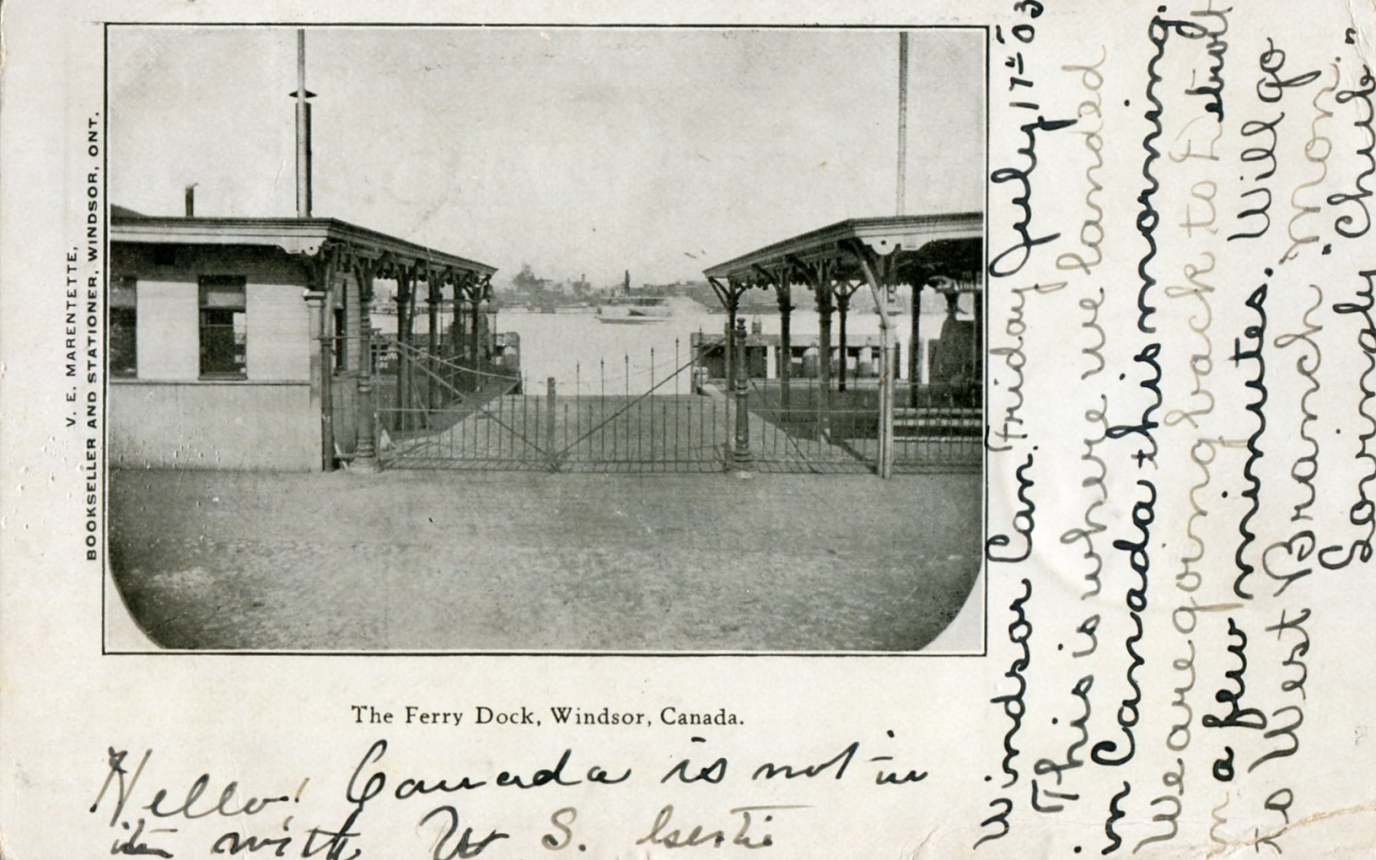 V. E. MARENTETTE,
BOOKSELLER AND STATIONER, WINDSOR, ONT.
The Ferry Dock, Windsor, Canada.
Hello! Canada is not in
it with U S. Gertie
Windsor Can. Friday July 17" 03
This is where we landed
in Canada this morning.
We are going back to Detroit
in a few minutes. Will go
to West Branch Mon.
Lovingly "Chub."